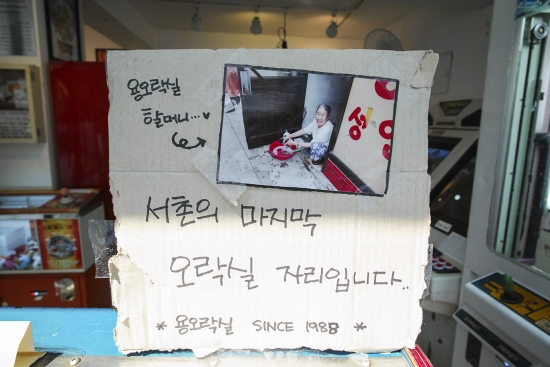 용오락실
할머니...♥
서촌의 마지막
오락실 자리입니다..
* 용오락실 SINCE 1988 *